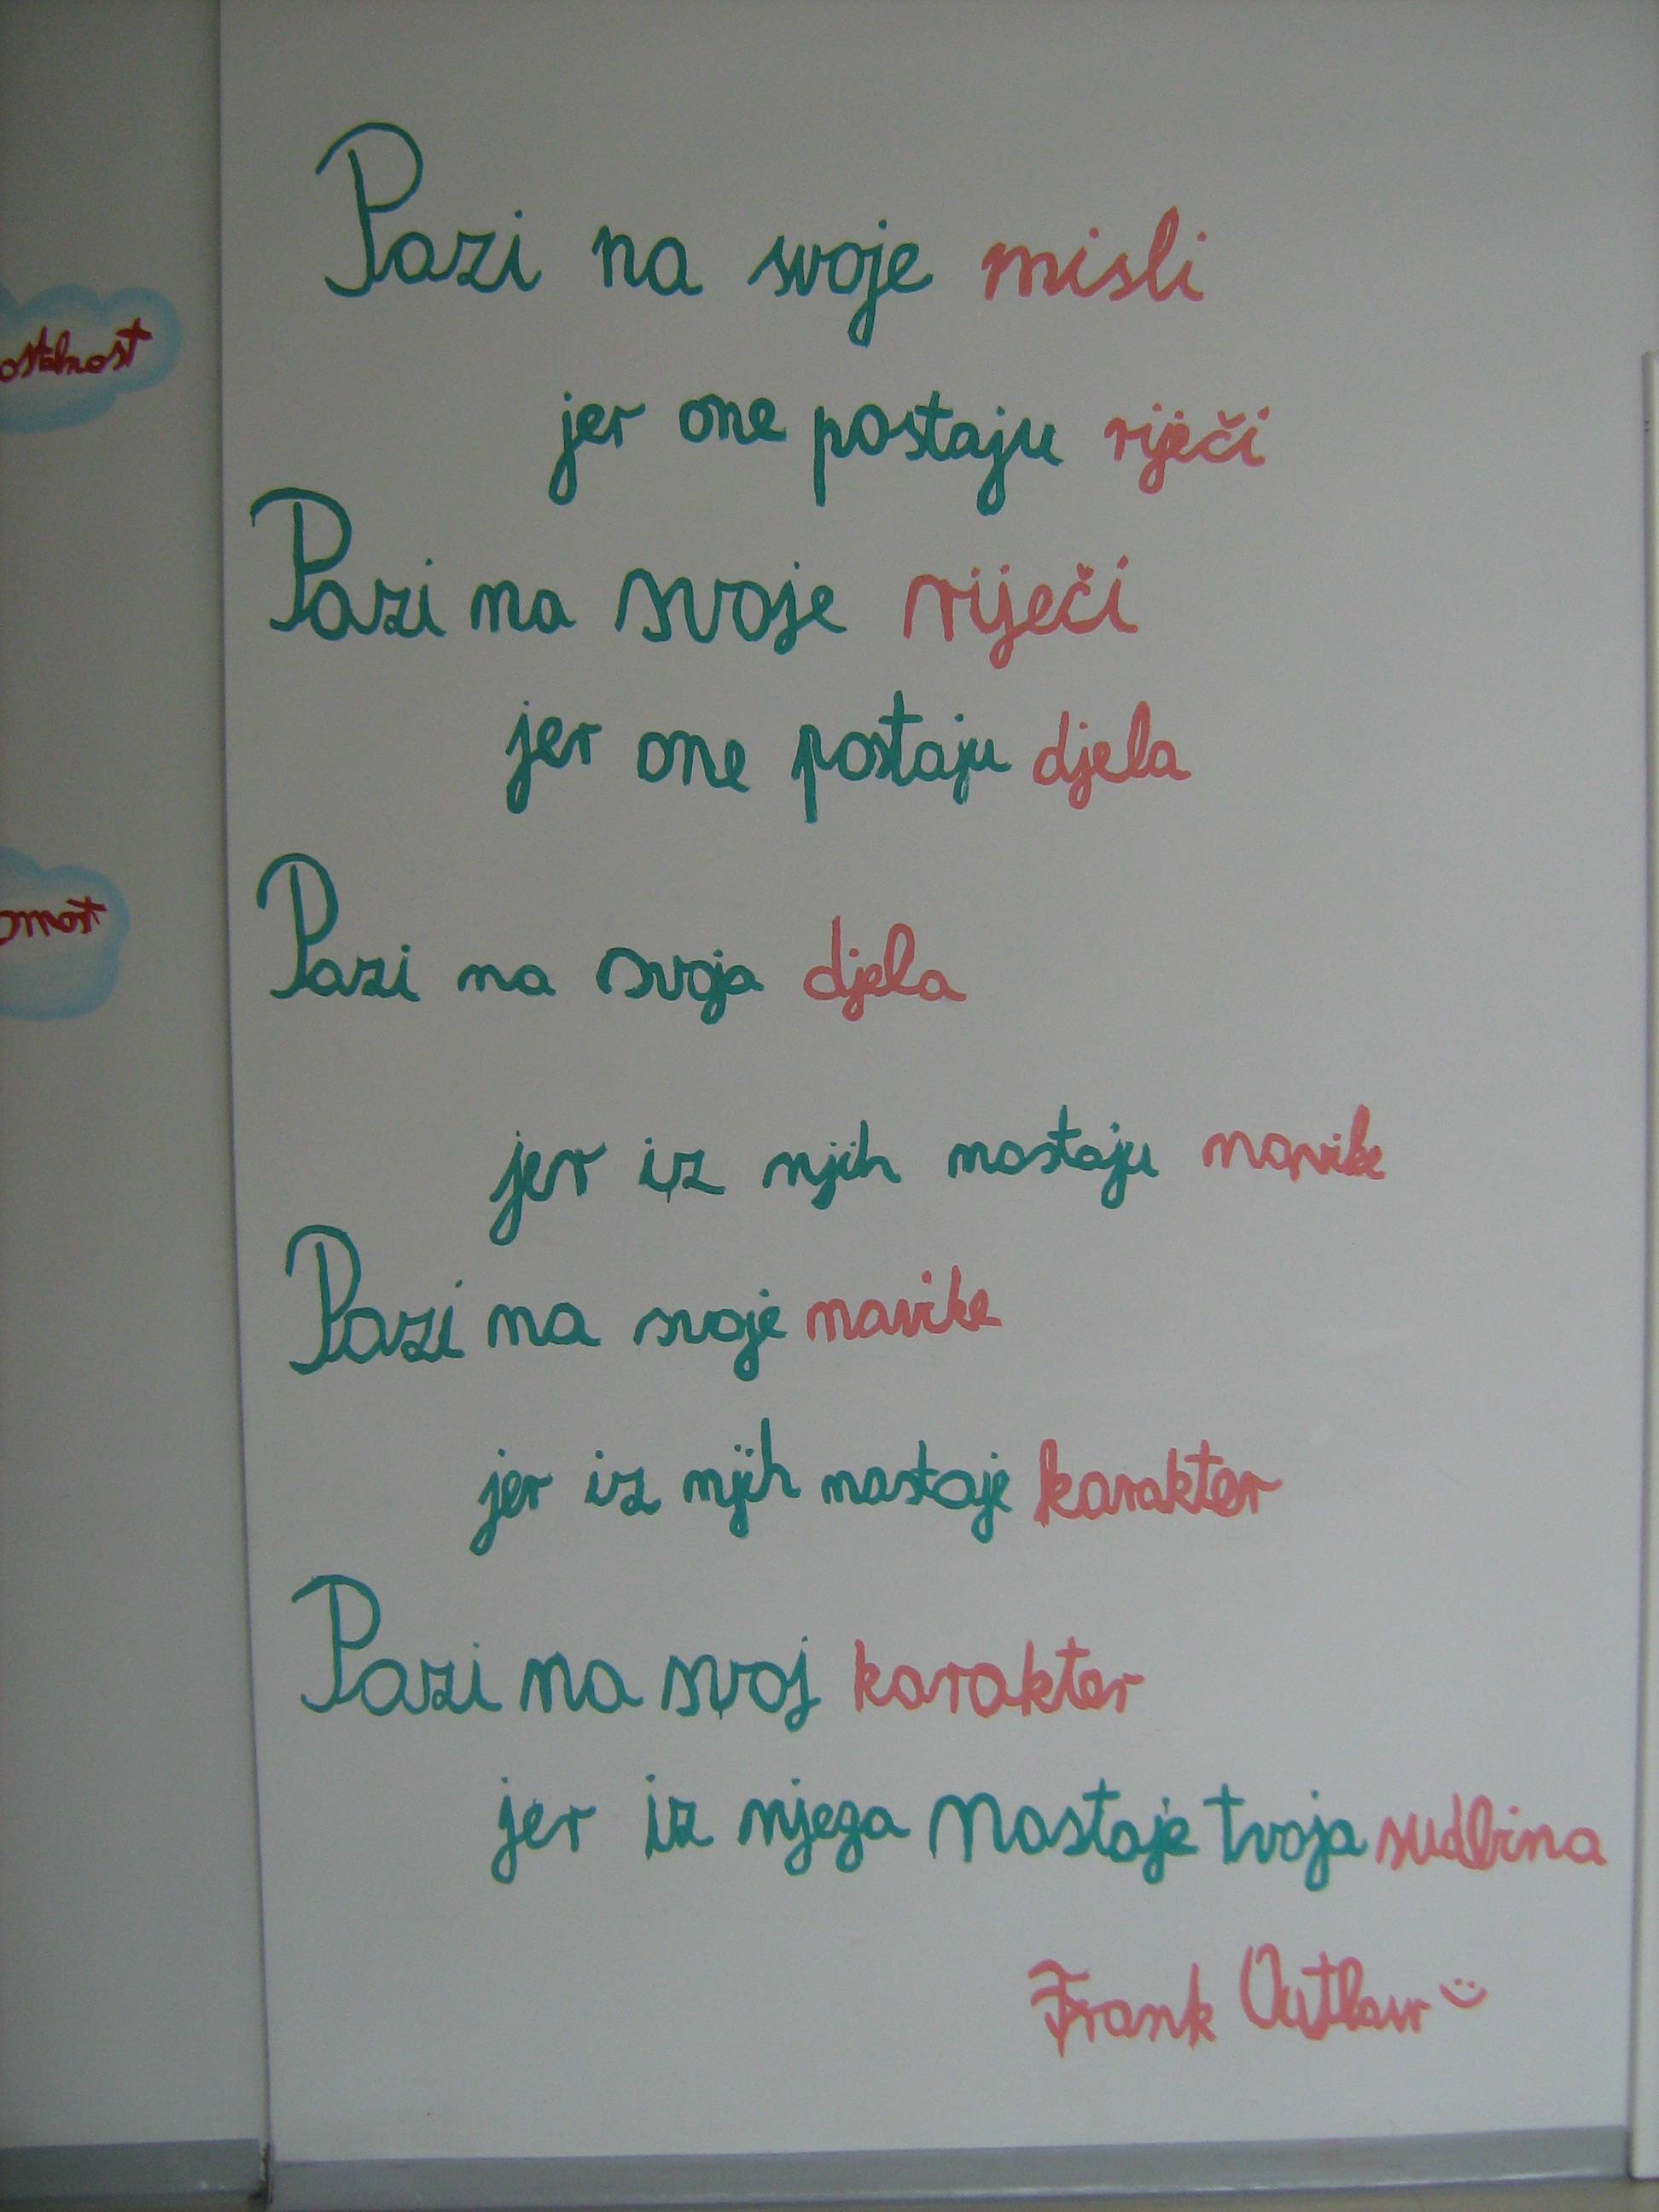 Pazi na svoje misli
jer one postaju riječi
Pazi na svoje riječi
jer one postaju djela
Pazi na svoja djela
jer iz njih nastaju navike
Pazi na svoje navike
jer iz njih nastaje karakter
Pazi na svoj karakter
jer iz njega nastaje tvoja sudbina
Frank Outlaw